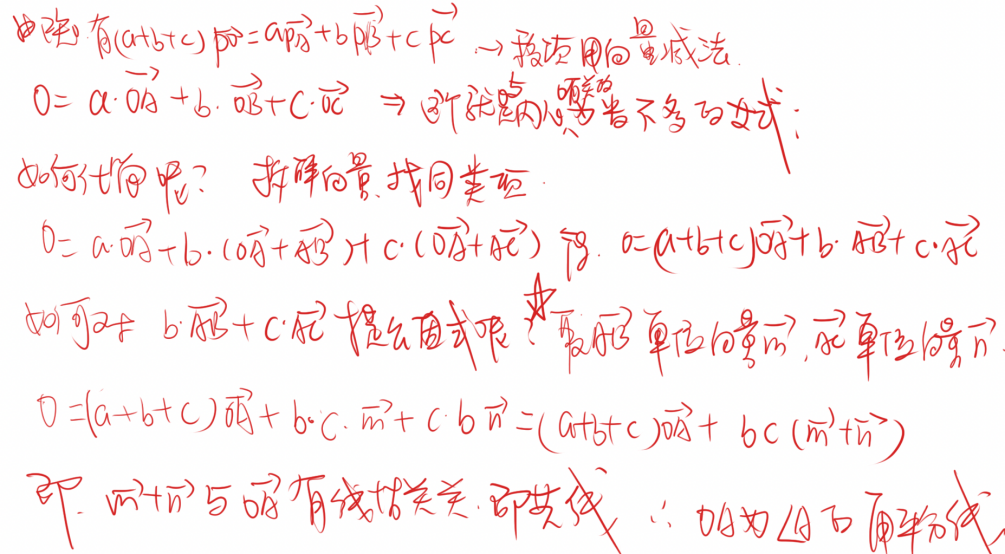 由题, 有(a+b+c)$\vec{PO}$=a$\vec{PA}$+b$\vec{PB}$+c$\vec{PC}$ → 移项用向量减法.
0= a·$\vec{OA}$+b·$\vec{OB}$+c·$\vec{OC}$ ⇒ 这个就是与内心有关的差不多的公式;
如何化简呢? 拆解向量,找同类项.
0= a·$\vec{OA}$+b·($\vec{OA}$+$\vec{AB}$)+c·($\vec{OA}$+$\vec{AC}$) 得. 0=(a+b+c)$\vec{OA}$+b·$\vec{AB}$+c·$\vec{AC}$
如何对 b·$\vec{AB}$+c·$\vec{AC}$ 提公因式呢? ☆ 设$\vec{AB}$单位向量$\vec{m}$, $\vec{AC}$单位向量$\vec{n}$.
0=(a+b+c)$\vec{OA}$+b·c·$\vec{m}$+c·b$\vec{n}$=(a+b+c)$\vec{OA}$+bc($\vec{m}$+$\vec{n}$)
即. $\vec{m}$+$\vec{n}$与$\vec{OA}$有线性关系.即共线 ∴ OA为∠A的角平分线